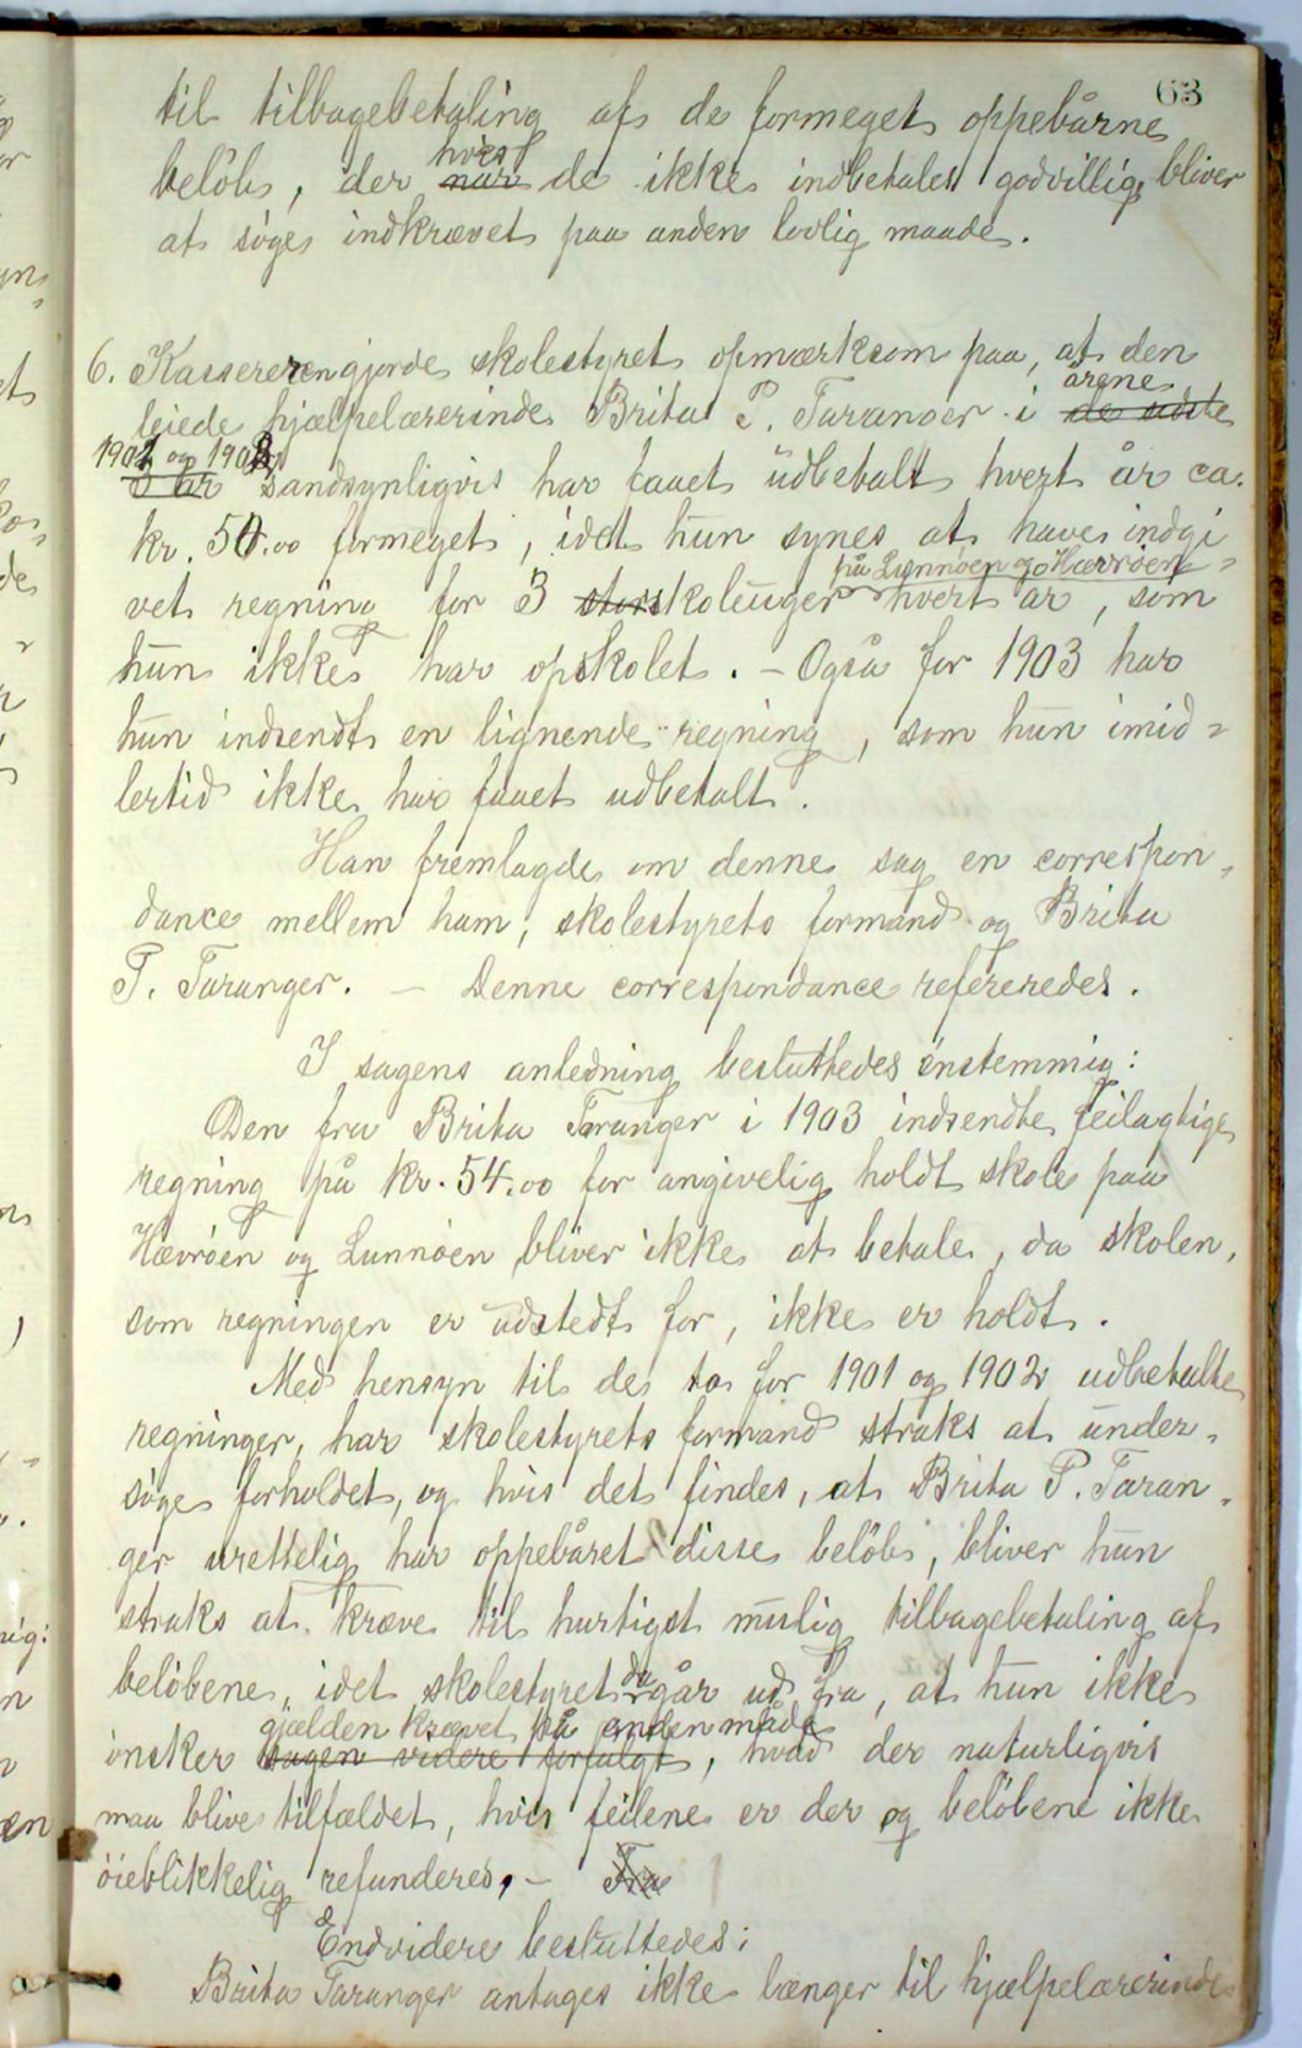 63
til tilbagebetaling af de formeget oppebårne
hvis
beløb, der når de ikke indbetales godvillig, bliver
at søges indkrævet paa anden lovlig maade.
6. Kassereren gjorde skolestyret opmærksom paa, at den
årene
leiede hjælpelærerinde Brita P. Taranger i de sidste
1901 og 1902
3 år sandsynligvis har faaet udbetalt hvert år ca.
kr. 54.00 formeget, idet hun synes at have indgi
på Lunnøen og Hævrøen
vet regning for 3 storskoleuger hvert år, som
hun ikke har opskolet. – Også for 1903 har
hun indsendt en lignende regning, som hun imid-
lertid ikke har faaet udbetalt.
Han fremlagde om denne sag en correspon-
dance mellem ham, skolestyrets formand og Brita
P. Taranger. – Denne correspondance refereredes.
I sagens anledning besluttedes enstemmig:
Den fra Brita Taranger i 1903 indsendte feilagtige
regning på kr. 54.00 for angivelig holdt skole paa
Hævrøen og Lunnøen bliver ikke at betale, da skolen,
som regningen er udstedt for, ikke er holdt.
Med hensyn til de to for 1901 og 1902 udbetalte
regninger, har skolestyrets formand straks at under-
søge forholdet, og hvis det findes, at Brita P. Taran-
ger urettelig har oppebåret disse beløb, bliver hun
straks at kræve til hurtigst mulig tilbagebetaling af
da
beløbene, idet skolestyret går ud fra, at hun ikke
gjælden krævet på anden måde
ønsker sagen videre forfulgt, hvad der naturligvis
maa blive tilfældet, hvis feilene er der og beløbene ikke
øieblikkelig refunderes. – Fra
Endvidere besluttedes:
Brita Taranger antages ikke længer til hjælpelærerinde